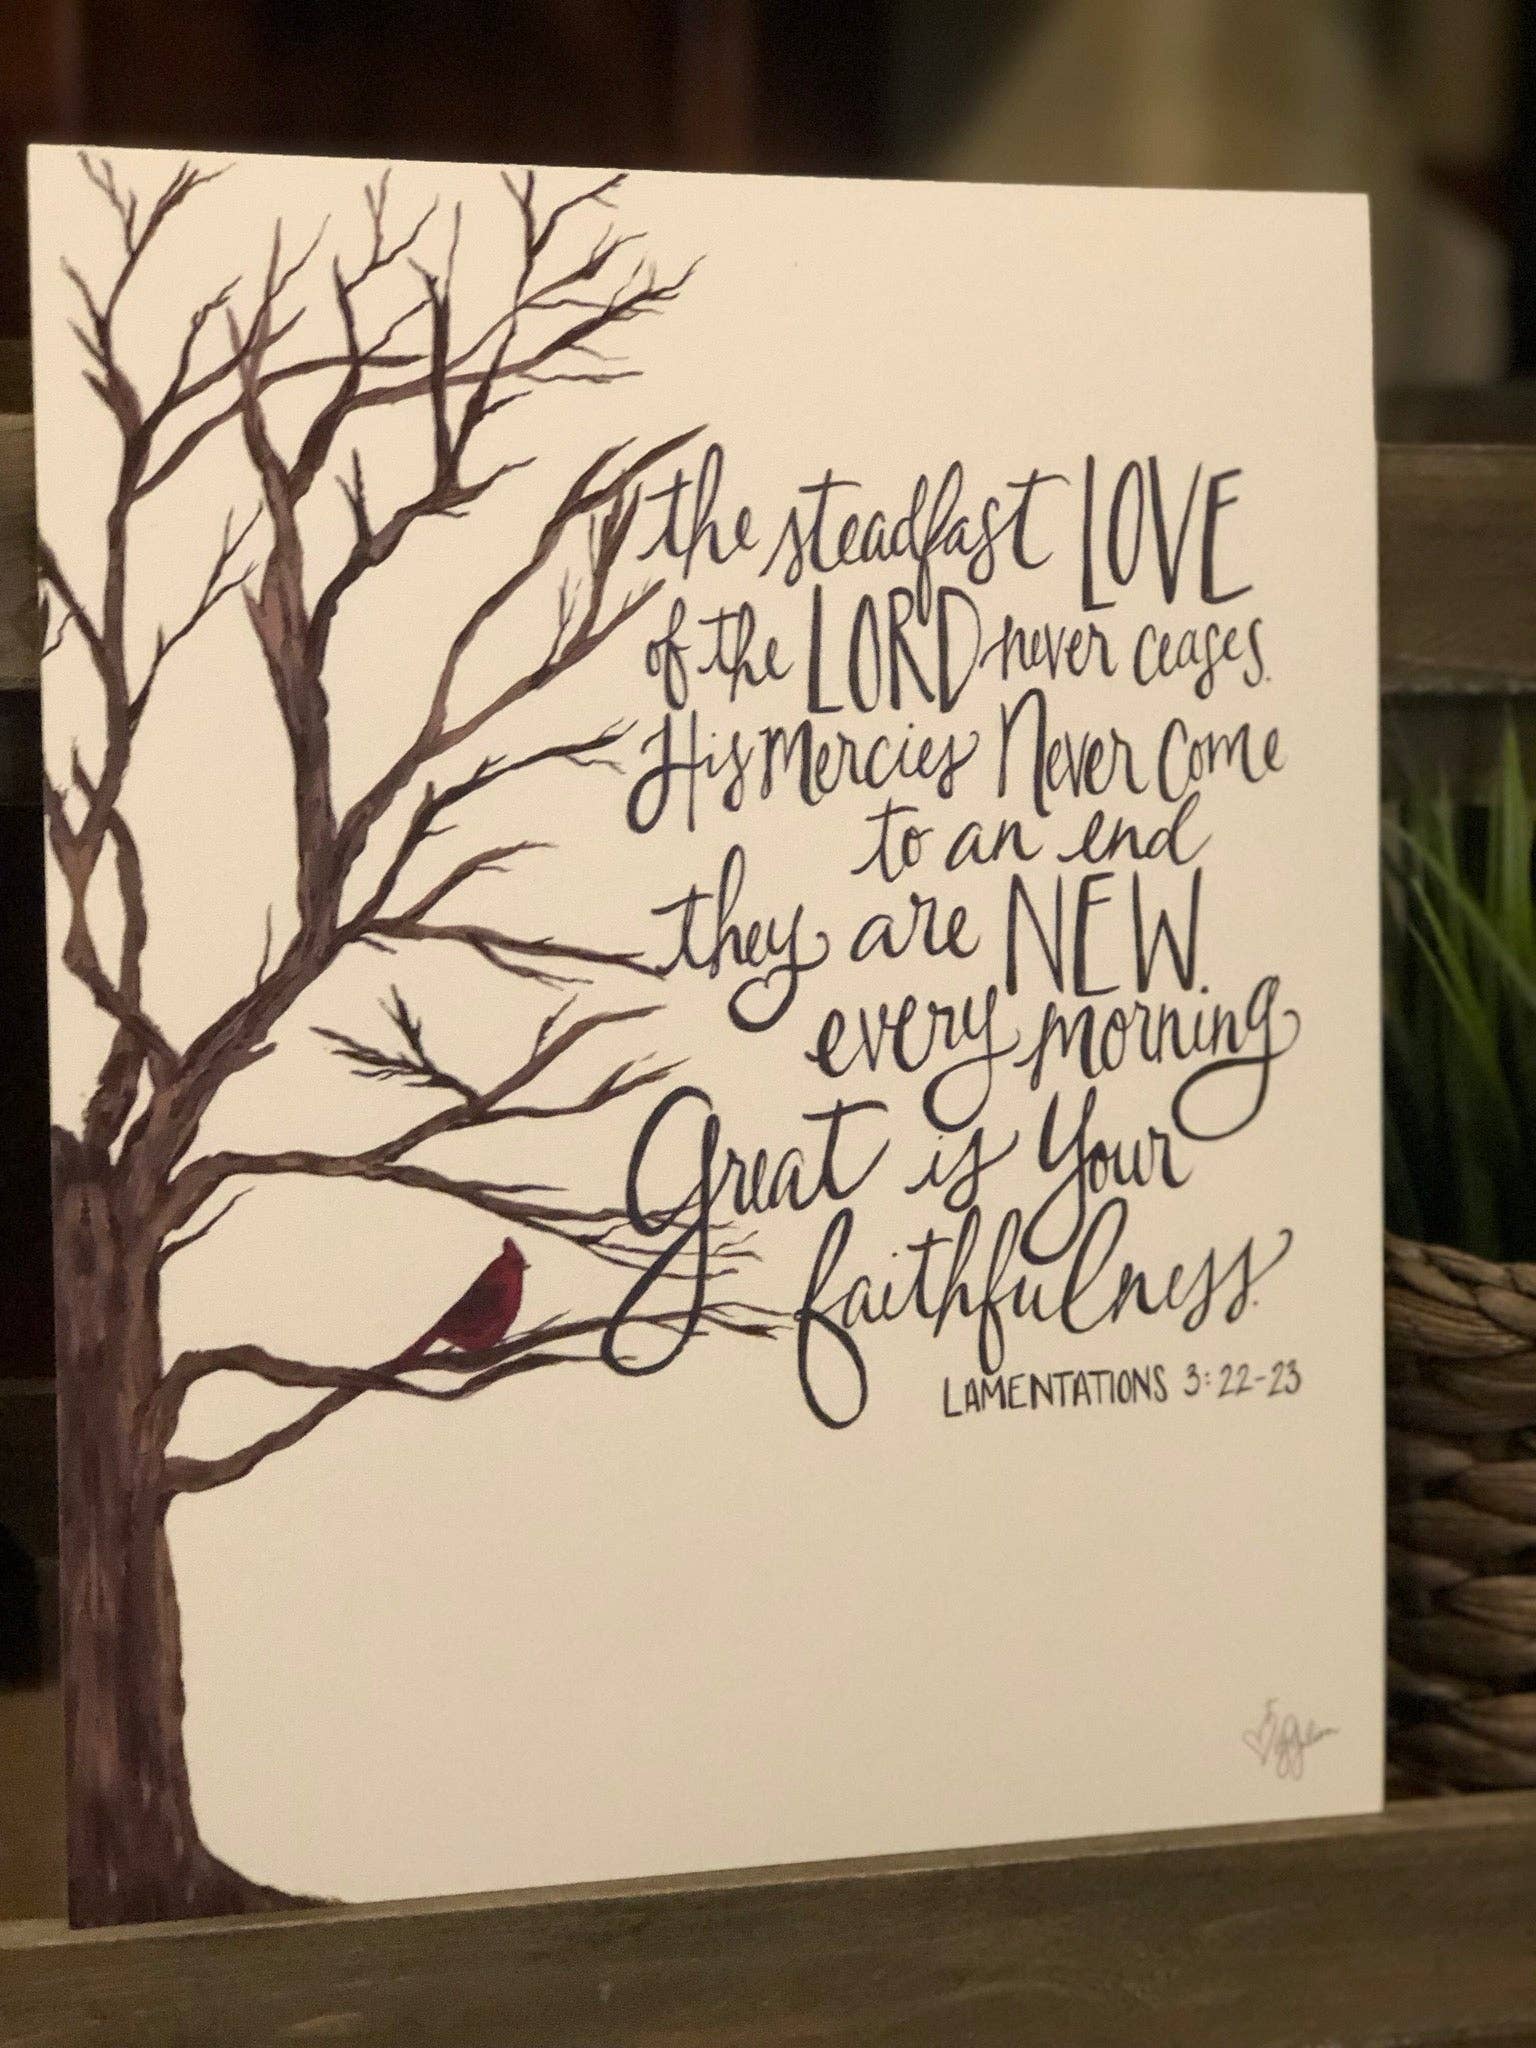 the steadfast LOVE
of the LORD never ceases.
His Mercies Never Come
to an end
they are NEW.
every morning
Great is Your
faithfulness.
LAMENTATIONS 3:22-23